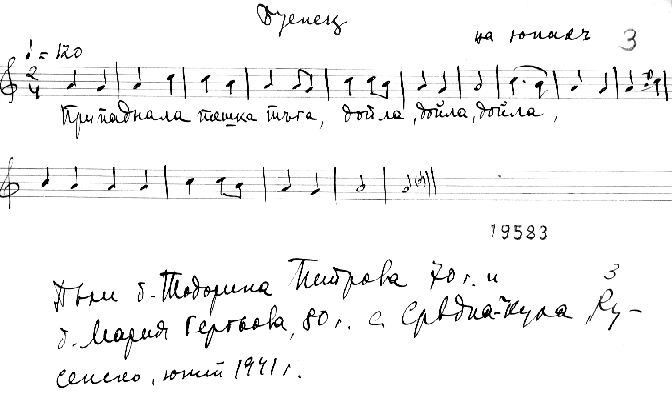 Дуенец
♩ = 120
на юнакъ 3
2/4
Припаднала тешка тъга, дойла, дойла, дойла,
19583
Пели б. Тодорина Петрова 70 г. и 3
б. Мария Гергьова, 80 г. с. Срѣдна-кула Ру-
сенско, юний 1941 г.